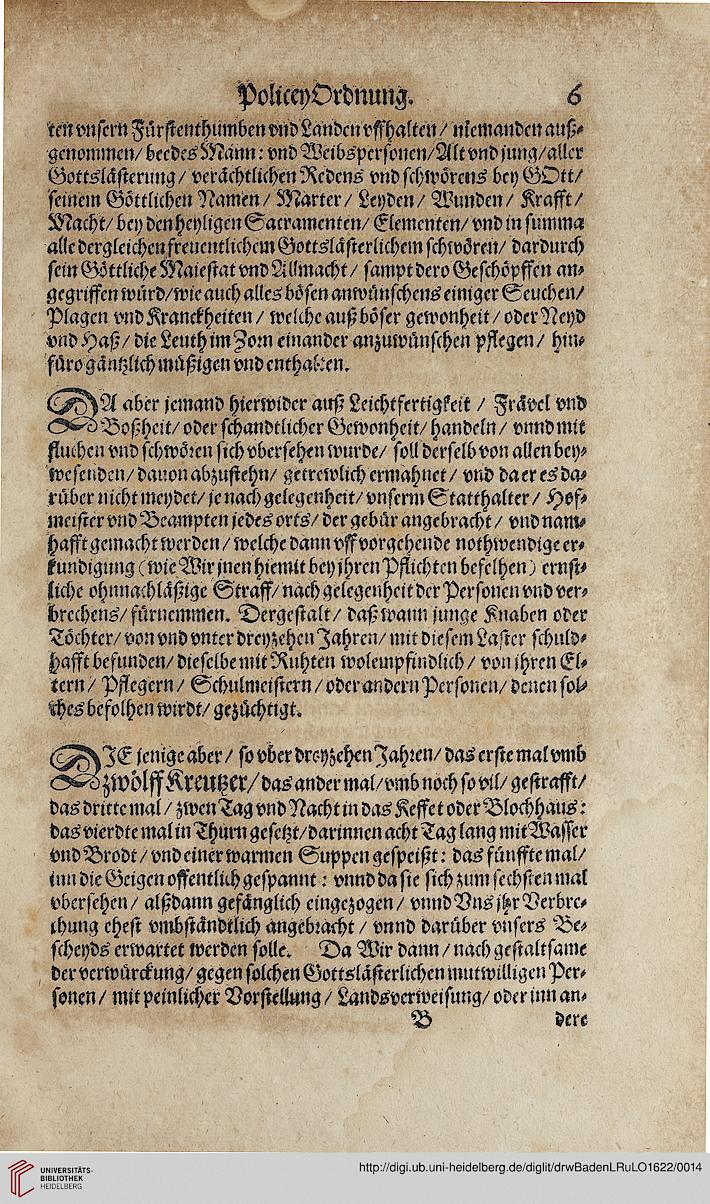 PoliceyOrdnung. 6
ten vnsern Fürstenthumben vnd Landen vffhalten / niemanden auß-
genommen / beedes Mann: vnd Weibspersonen/Alt vnd jung/aller
Gottslästerung / verächtlichen Redens vnd schwörens bey GOtt/
seinem Göttlichen Namen / Marter / Leyden / Wunden / Krafft /
Macht/ bey den heyligen Sacramenten/ Elementen/ vnd in summa
alle dergleichen freuentlichem Gottslästerlichem schwören/ dardurch
sein Göttliche Maiestat vnd Allmacht / sampt dero Geschöpffen an-
gegriffen würd/wie auch alles bösen anwünschens einiger Seuchen/
Plagen vnd Kranckheiten / welche auß böser gewonheit / oder Neyd
vnd Haß / die Leuth im Zorn einander anzuwünschen pflegen / hin-
füro gäntzlich müßigen vnd enthalten.
DA aber jemand hierwider auß Leichtfertigkeit / Frävel vnd
Boßheit/ oder schandtlicher Gewonheit/ handeln / vnnd mit
fluchen vnd schwören sich vbersehen wurde/ soll derselb von allen bey-
wesenden/ dauon abzustehn/ getrewlich ermahnet / vnd da er es da-
rüber nicht meydet/ je nach gelegenheit/ vnserm Statthalter / Hof-
meister vnd Beampten jedes orts/ der gebür angebracht / vnd nam-
hafft gemacht werden / welche dann vff vorgehende nothwendige er-
kundigung (wie Wir jnen hiemit bey jhren Pflichten befelhen) ernst-
liche ohnnachläßige Straff/ nach gelegenheit der Personen vnd ver-
brechens/ fürnemmen. Dergestalt / daß wann junge Knaben oder
Töchter/ von vnd vnter dreyzehen Jahren/ mit diesem Laster schuld-
hafft befunden/ dieselbe mit Ruhten wolempfindlich / von jhren El-
tern / Pflegern / Schulmeistern / oder andern Personen/ denen sol-
ches befolhen wirdt/ gezüchtigt.
DIE jenige aber / so vber dreyzehen Jahren/ das erste mal vmb
zwölff Kreutzer/ das ander mal/ vmb noch so vil/ gestrafft/
das dritte mal / zwen Tag vnd Nacht in das Keffet oder Blochhaus:
das vierdte mal in Thurn gesetzt/darinnen acht Tag lang mit Wasser
vnd Brodt / vnd einer warmen Suppen gespeißt: das fünffte mal/
inn die Geigen offentlich gespannt : vnnd da sie sich zum sechsten mal
vbersehen / alßdann gefänglich eingezogen / vnnd Vns jhr Verbre-
chung ehest vmbständtlich angebracht / vnnd darüber vnsers Be-
scheyds erwartet werden solle. Da Wir dann / nach gestaltsame
der verwürckung/ gegen solchen Gottslästerlichen mutwilligen Per-
sonen / mit peinlicher Vorstellung / Landsverweisung/ oder inn an-
B dere
UNIVERSITÄTS-
BIBLIOTHEK
HEIDELBERG
http://digi.ub.uni-heidelberg.de/diglit/drwBadenLRuLO1622/0014